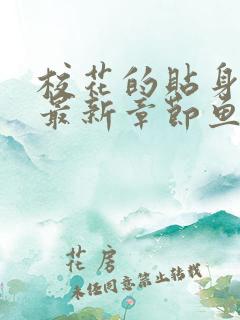 校花的贴身
最新章节鱼
花房
未经同意禁止转载